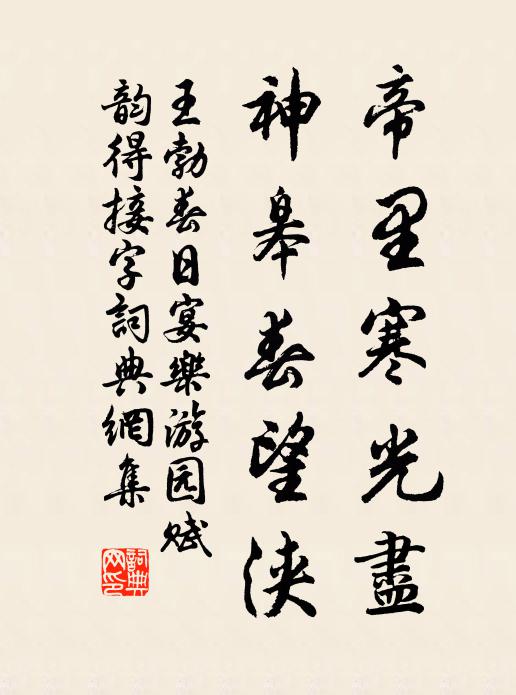 帝里寒光盡
神皋春望浹
王勃春日宴樂游园賦
韵得接字詞典網集
詞典网印